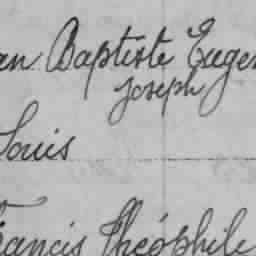 an Baptiste Euge
Joseph
Louis
Francis Théophile